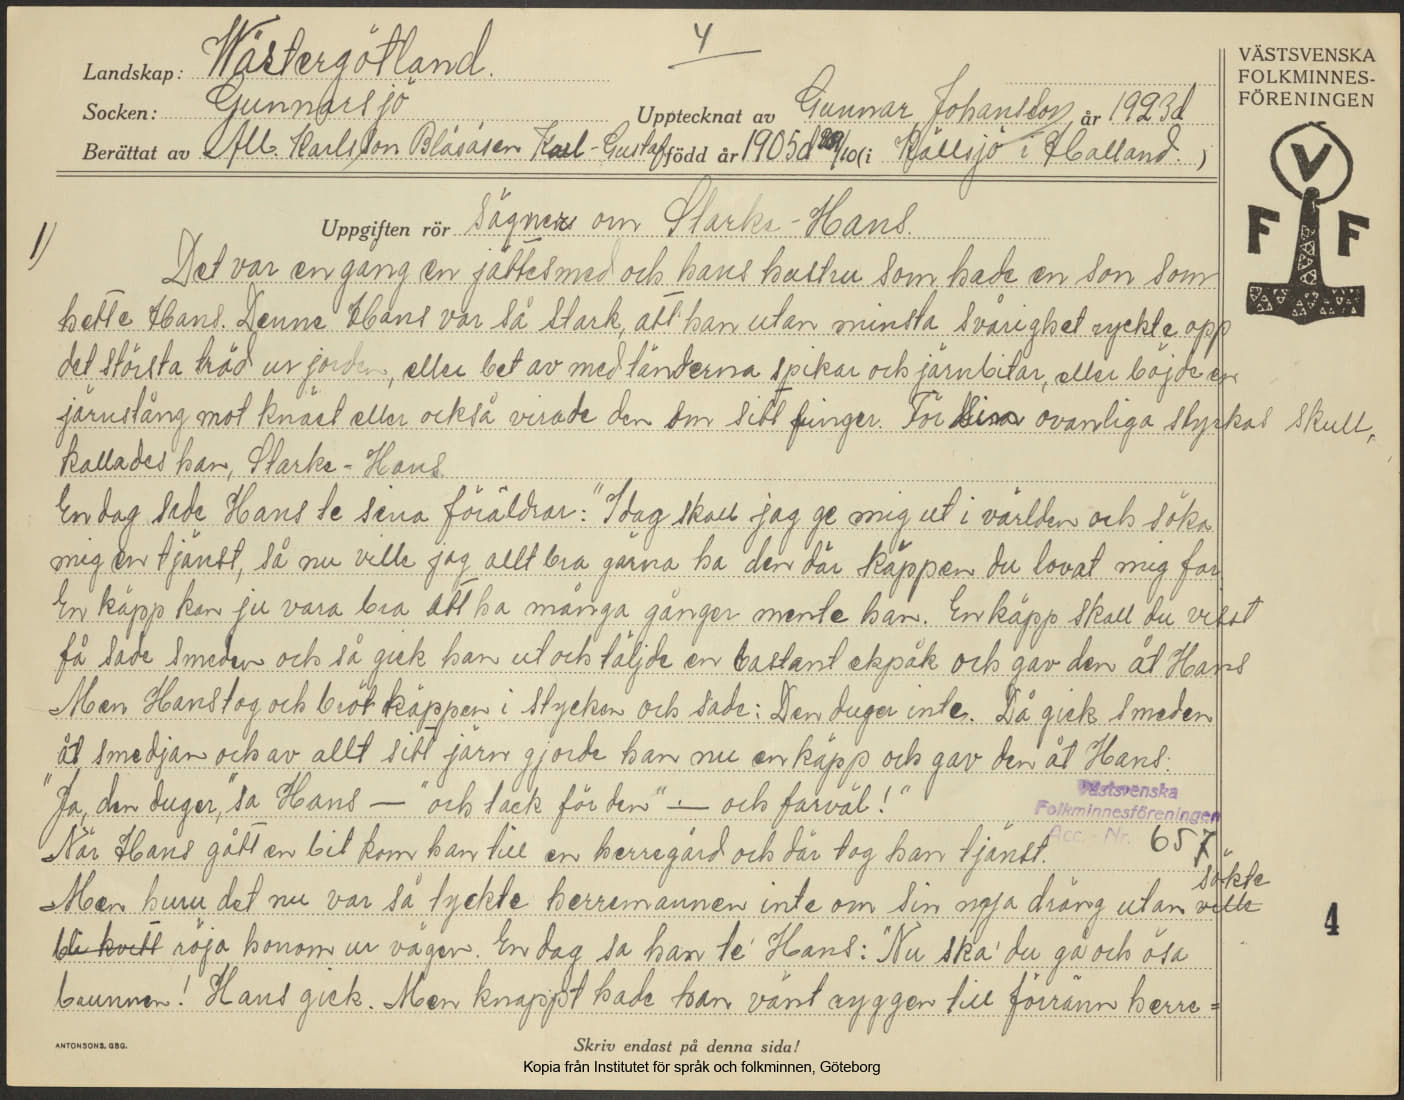 4
Landskap: Wästergötland.
Socken: Gunnarsjö
Upptecknat av Gunnar Johansson, år 1923d
Berättat av All. Karlsson Blåsåsen Karl-Gustaf född år 1905d 29/10 (i Källsjö i Halland.)
VÄSTSVENSKA
FOLKMINNES-
FÖRENINGEN
V
F F
Uppgiften rör Sägner om Starke-Hans.
1)
Det var en gång en jättesmed och hans hustru som hade en son som
hette Hans. Denne Hans var så stark, att han utan minsta svårighet ryckte opp
det största träd ur jorden, eller bet av med tänderna spikar och järnbitar, eller böjde en
järnstång mot knäet eller också virade den om sitt finger. För sina ovanliga styrkas skull,
kallades han, Starke-Hans.
En dag sade Hans te sina föräldrar: "Idag skall jag ge mig ut i världen och söka
mig en tjänst, så nu ville jag allt bra gärna ha den där käppen du lovat mig far.
En käpp kan ju vara bra att ha många gånger mente han. En käpp skall du visst
få sade smeden och så gick han ut och täljde en bastant ekpåk och gav den åt Hans
Men Hans tog och bröt käppen i stycken och sade: Den duger inte. Då gick smeden
åt smedjan och av allt sitt järn gjorde han nu en käpp och gav den åt Hans.
"Ja, den duger," sa Hans — "och tack för den" — och farväl!"
Västsvenska
Folkminnesföreningen
Acc. - Nr. 657
När Hans gått en bit kom han till en herregård och där tog han tjänst.
Men huru det nu var så tyckte herremannen inte om sin nya dräng utan ville sökte
bli kvitt röja honom ur vägen. En dag sa han te' Hans: "Nu ska' du gå och ösa
4
brunnen! Hans gick. Men knappt hade han vänt ryggen till förränn herre=
ANTONSONS, GBG.
Skriv endast på denna sida!
Kopia från Institutet för språk och folkminnen, Göteborg